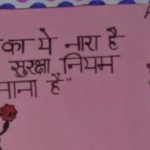 का ये नारा है
सुरक्षा नियम
नाना है"